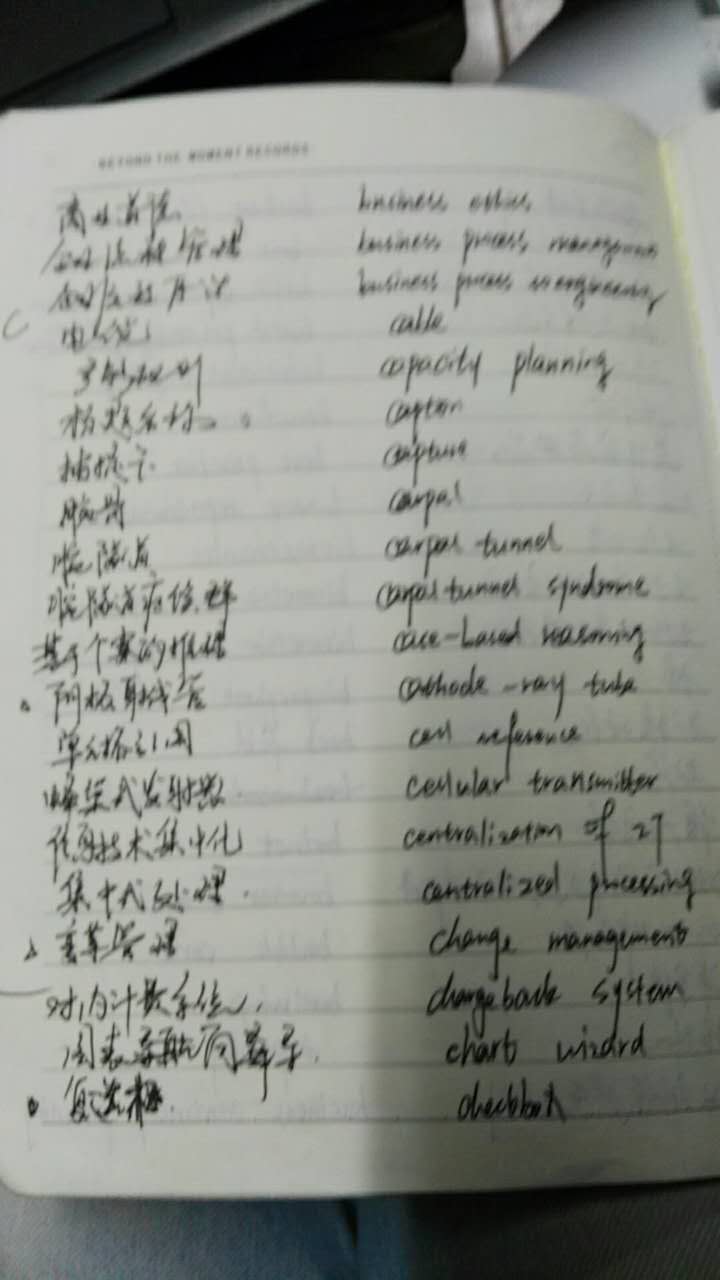 BEYOND THE MOMENT RECORDS
商业道德 business ethics
企业流程管理 business process management
企业流程再设 business process reengineering
C 电缆 cable
容纳规划 capacity planning
标题名称 caption
捕捉 capture
腕骨 carpal
腕隧道 carpal tunnel
腕隧道症候群 carpal tunnel syndrome
基于个案的推理 case-based reasoning
阴极射线管 cathode-ray tube
单元格引用 cell reference
蜂巢式发射 cellular transmitter
信息技术集中化 centralization of IT
集中式处理 centralized processing
变革管理 change management
对内计费系统 chargeback system
图表 chart wizard
复选框 checkbox